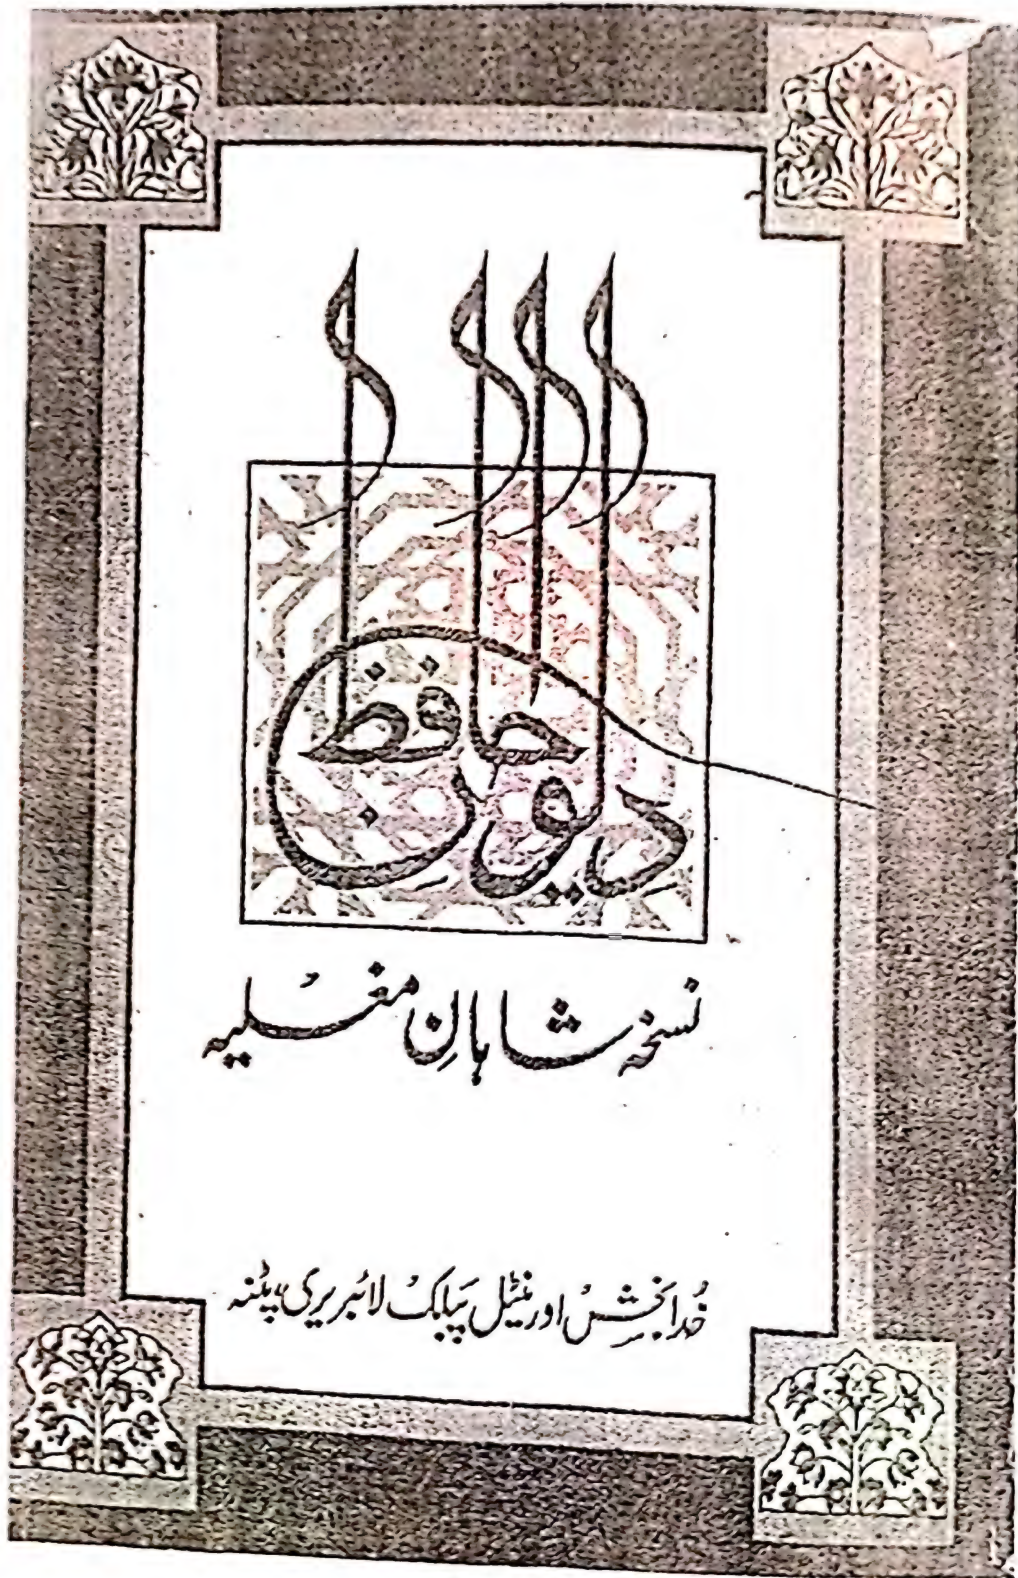 دیوانِ حافظ
نسخہ شاہانِ مغلیہ
خُدا بخش اورینٹیل پبلک لائبریری، پٹنہ